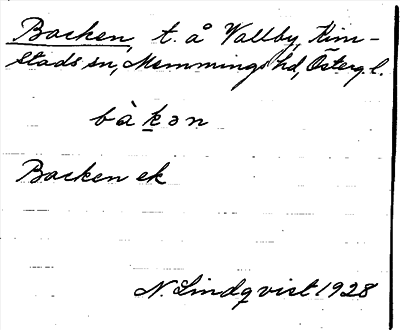 Backen, t. å Vallby, Kim-
stads sn, Memmings hd, Österg. l.
bàk̲ən
Backen ek
N. Lindqvist 1928